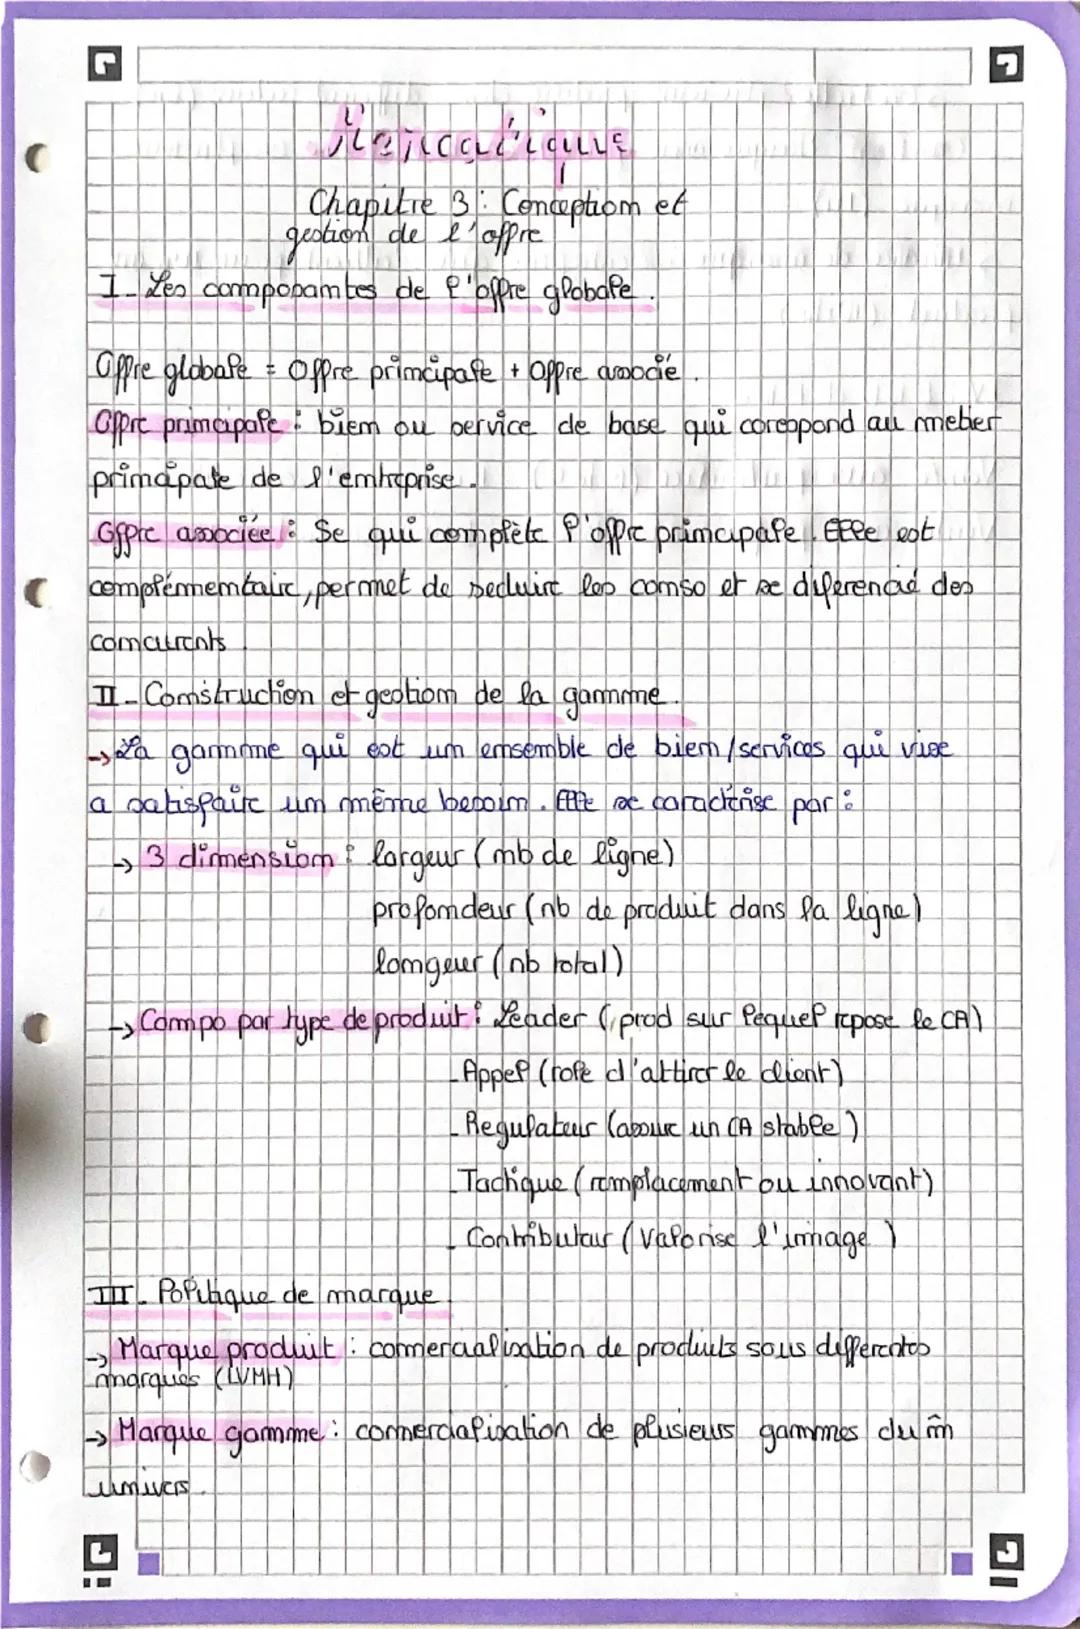 Mercatique
Chapitre 3 : Conception et
gestion de l'offre
I - Les composantes de l'offre globale.
Offre globale = Offre principale + Offre associé.
Offre principale : bien ou service de base qui corespond au metier
principale de l'entreprise.
Offre associée : Se qui complète l'offre principale. Elle est
complémentaire, permet de seduire les conso et se diferencié des
concurents.
II - Construction et gestion de la gamme.
→ La gamme qui est un ensemble de bien/services qui vise
a satisfaire un même besoin. Elle se caractérise par :
→ 3 dimension : largeur (nb de ligne)
profondeur (nb de produit dans la ligne)
longeur (nb total)
→ Compo par type de produit : Leader (prod sur lequel repose le CA)
- Appel (role d'attirer le client)
- Regulateur (assure un CA stable)
- Tactique (remplacement ou innovant)
- Contributeur (valorise l'image)
III - Politique de marque.
→ Marque produit : commercialisation de produits sous differentes
marques (LVMH)
→ Marque gamme : commercialisation de plusieurs gammes du m̂
univers.